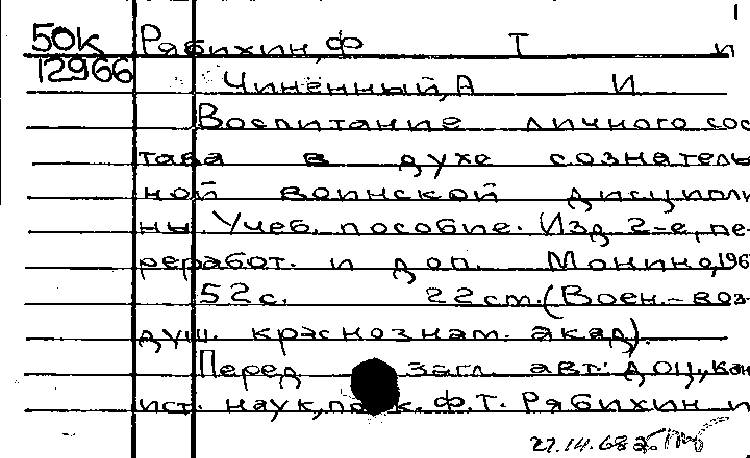 1
50к Рябихин, Ф Т и
12966
Чиненный, А И
Воспитание личного сос
тава в духе сознатель
ной воинской дисципли
ны. Учеб. пособие. Изд 2-е, пе-
реработ. и доп. Монино, 196
52 с. 22 см. (Воен.-воз-
душ. краснознам. акад).
Перед загл. авт: доц, кан
ист. наук, Ф.Т. Рябихин и